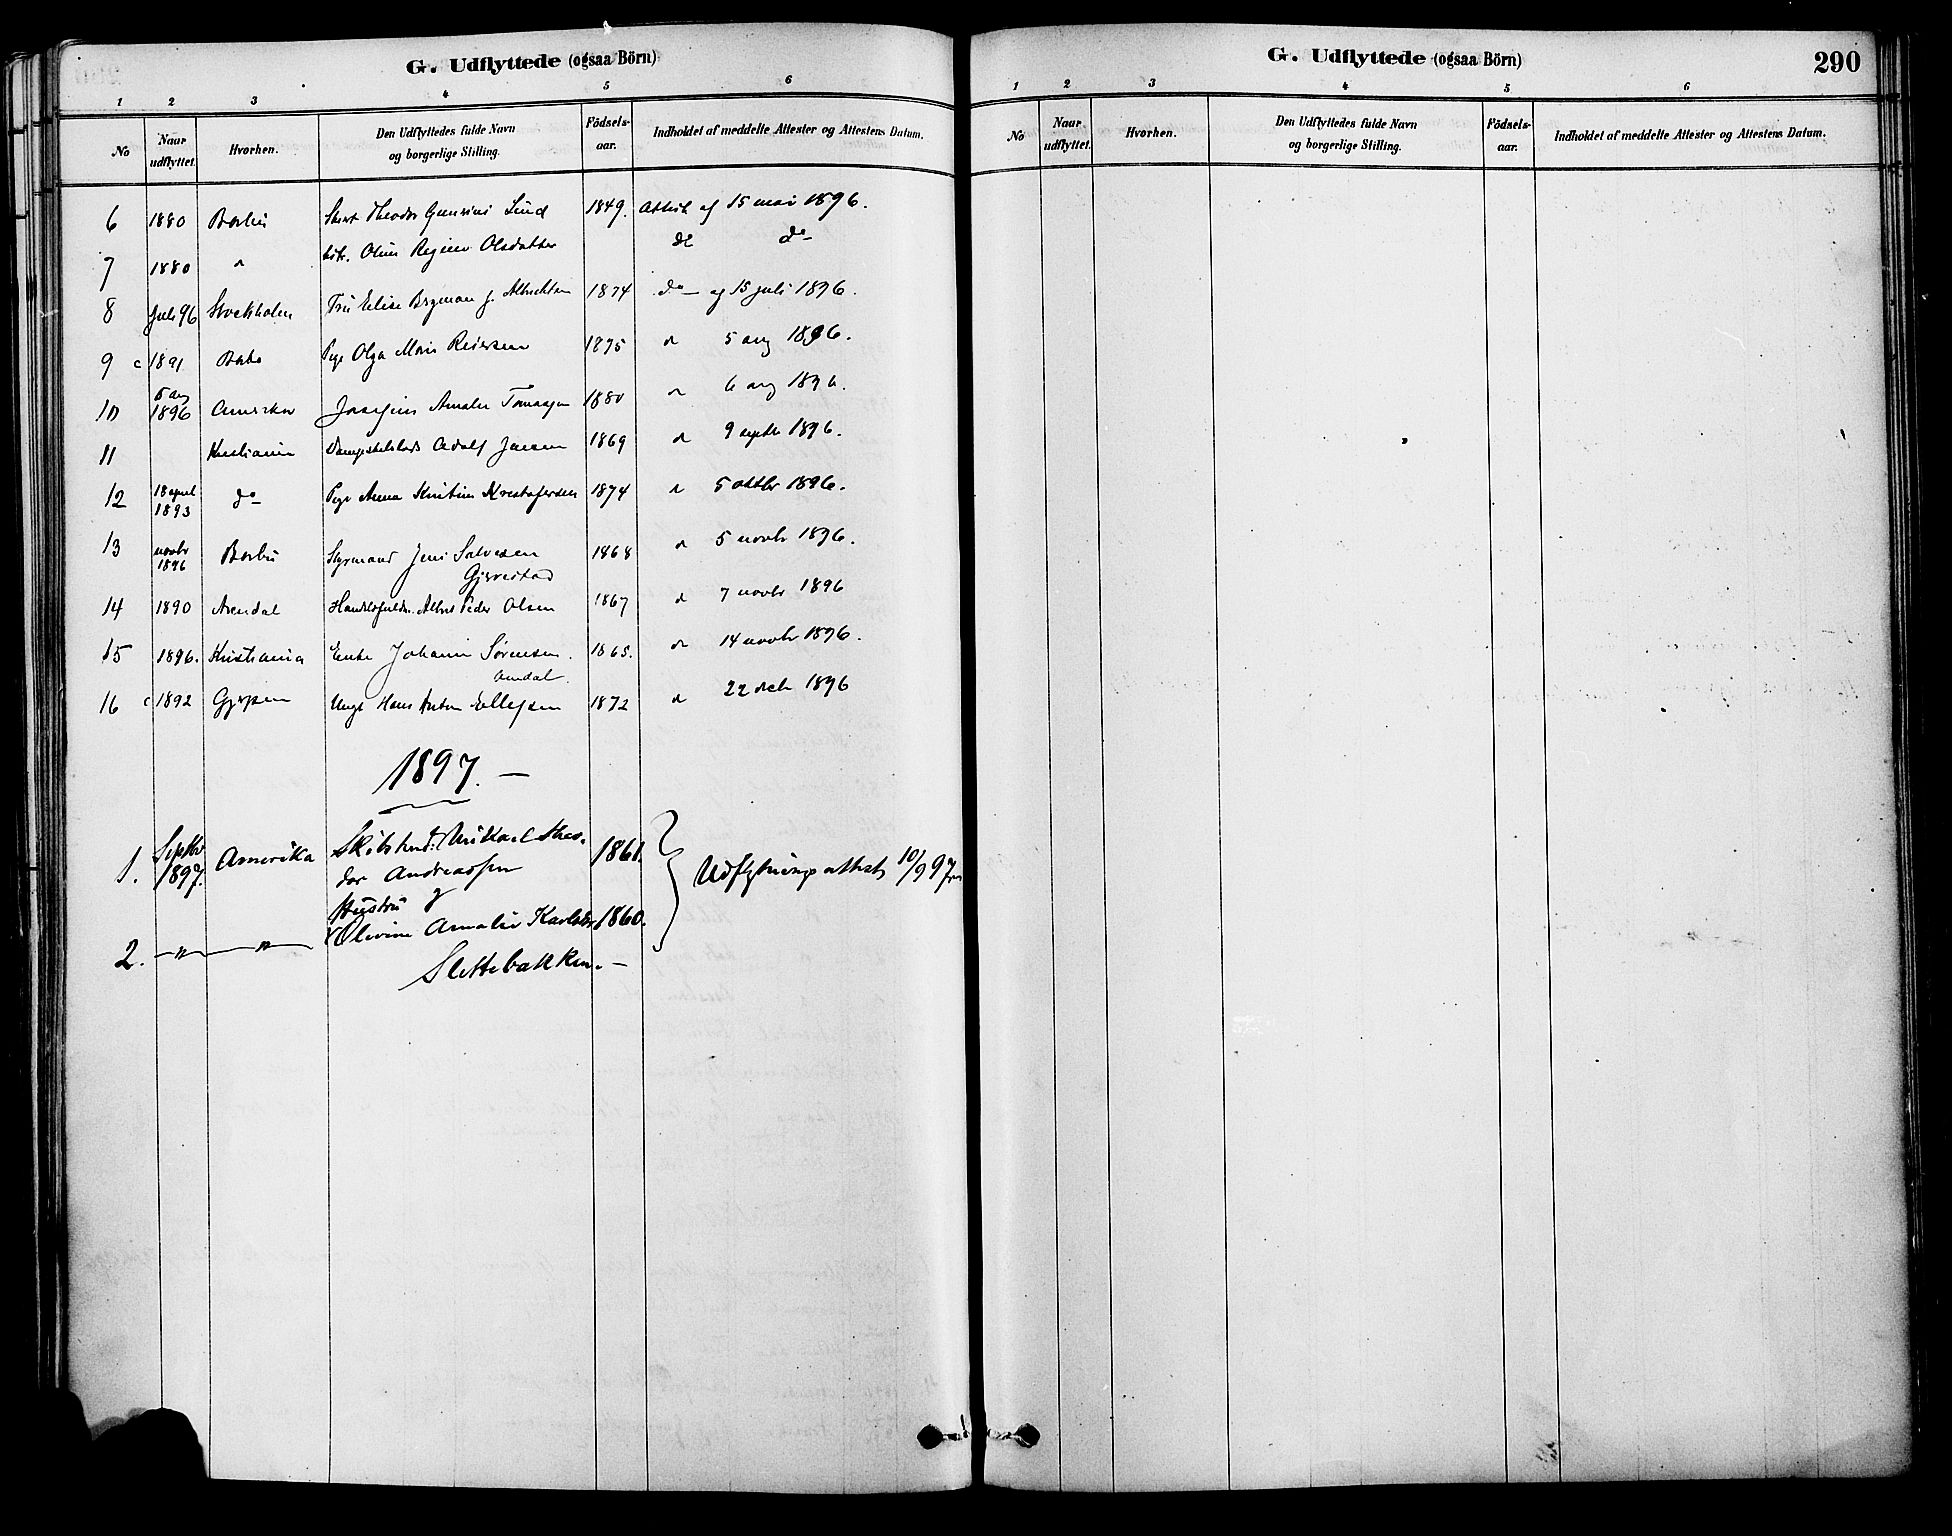 G. Udflyttede (ogsaa Börn)
1 2 3 4 5 6
No Naar udflyttet. Hvorhen. Den Udflyttedes fulde Navn og borgerlige Stilling. Födsels-aar. Indholdet af meddelte Attester og Attestens Datum.
6 1880 Barbu Theodor Lund 1849. Attest af 15 mai 1896.
7 1880 " Olsdatter do
8 Juli 96 Stockholm Fru Elise f. 1874 do - af 15 juli 1896.
9 c 1891 Barbo Pige Olga Marie Reiersen 1875 " 5 aug 1896.
10 5 aug 1896 Amerika Josefine Amalie 1880 " 6 aug 1896.
11 Kristiania Adolf Jensen 1869 " 9 septbr 1896.
12 18 april 1893 do - Pige Anna Kristine Kristofersen 1874 " 5 oktbr 1896.
13 novbr 1896 Barbu Styrmand Jens Salvesen 1868 " 5 novbr 1896.
Gjerrestad
14 1890 Arendal Peder Olsen 1867 " 7 novbr 1896
15 1896. Kristiania Enke Johanne Sørensen. 1865. " 14 novbr 1896.
16 c 1892 Gjerpen Ungk Hans Anton Ellefsen 1872 " 22 decb 1896
1897. —
1. Septbr 1897. Amerika Mikael Theo-
dor Andreassen 1861. Udflytningsattest 10/9 97
Hustru
2. — " — — " — Olivine Amalie Karlsdr 1860.
Slettebakken. —
G. Udflyttede (ogsaa Börn)
290
1 2 3 4 5 6
No Naar udflyttet. Hvorhen. Den Udflyttedes fulde Navn og borgerlige Stilling. Födsels-aar. Indholdet af meddelte Attester og Attestens Datum.